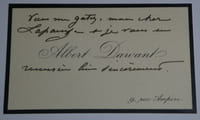 Vous me gâtez, mon cher
Lapauze & je vous en
Albert Dawant
remercie bien sincèrement
9, rue Ampère